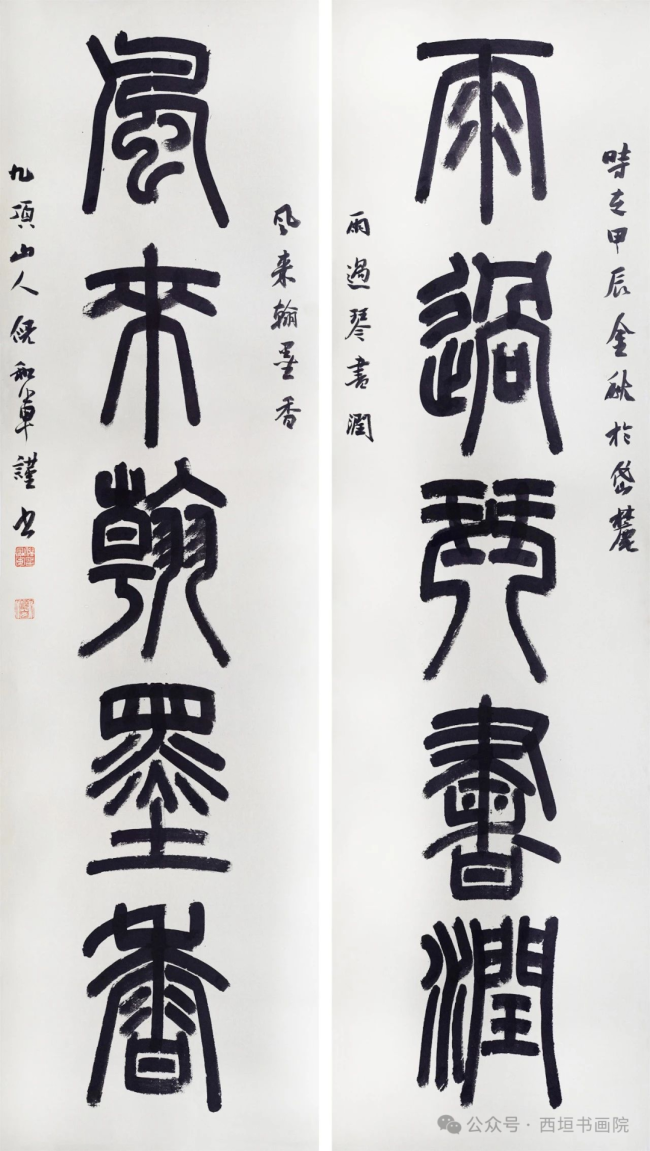 時在甲辰金秋於岱麓
雨過琴書潤
雨過琴書潤
風來翰墨香
風來翰墨香
九項山人倪和軍謹書
公众号·西垣书画院